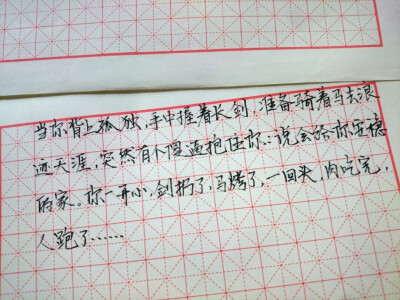 当你背上孤独,手中握着长剑,准备骑着马去浪
迹天涯,突然有个傻逼抱住你:说会给你安稳
的家。你一开心,剑扔了,马烤了,一回头,肉吃完,
人跑了……